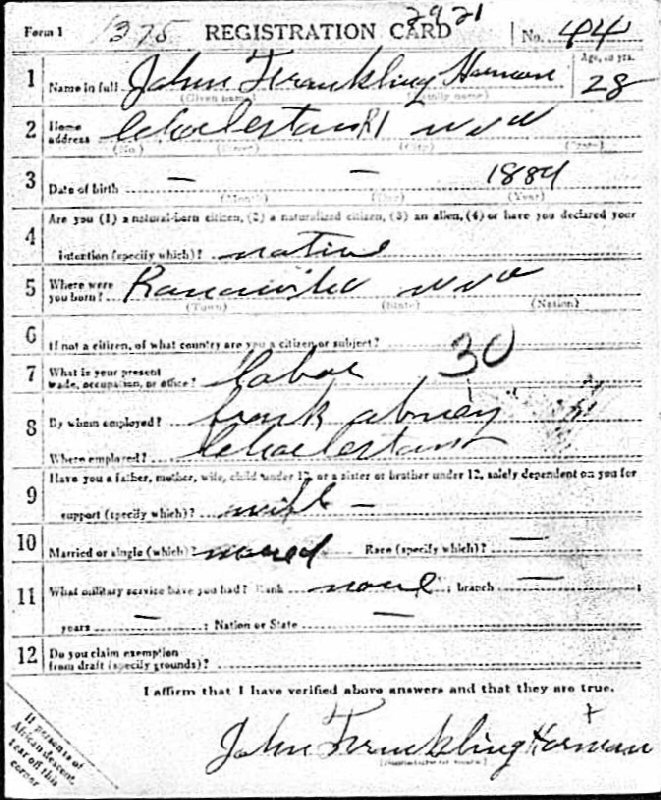 Form 1 1375 REGISTRATION CARD 2921 No. 44
1 Name in full John Frankling Harman Age, in yrs. 28
(Given name) (Family name)
2 Home address W Va
(No.) (Street) (City) (State)
3 Date of birth — — 1884
(Month) (Day) (Year)
4 Are you (1) a natural-born citizen, (2) a naturalized citizen, (3) an alien, (4) or have you declared your
intention (specify which)? native
5 Where were you born? W Va
(Town) (State) (Nation)
6 If not a citizen, of what country are you a citizen or subject?
7 What is your present trade, occupation, or office? Labor 30
8 By whom employed? Frank
Where employed?
9 Have you a father, mother, wife, child under 12, or a sister or brother under 12, solely dependent on you for
support (specify which)? wife —
10 Married or single (which)? Race (specify which)? —
11 What military service have you had? Rank none ; branch — ;
years — ; Nation or State —
12 Do you claim exemption
from draft (specify grounds)?
I affirm that I have verified above answers and that they are true.
John Frankling Harman
(Signature or mark)
If persons of
African descent,
tear off this
corner